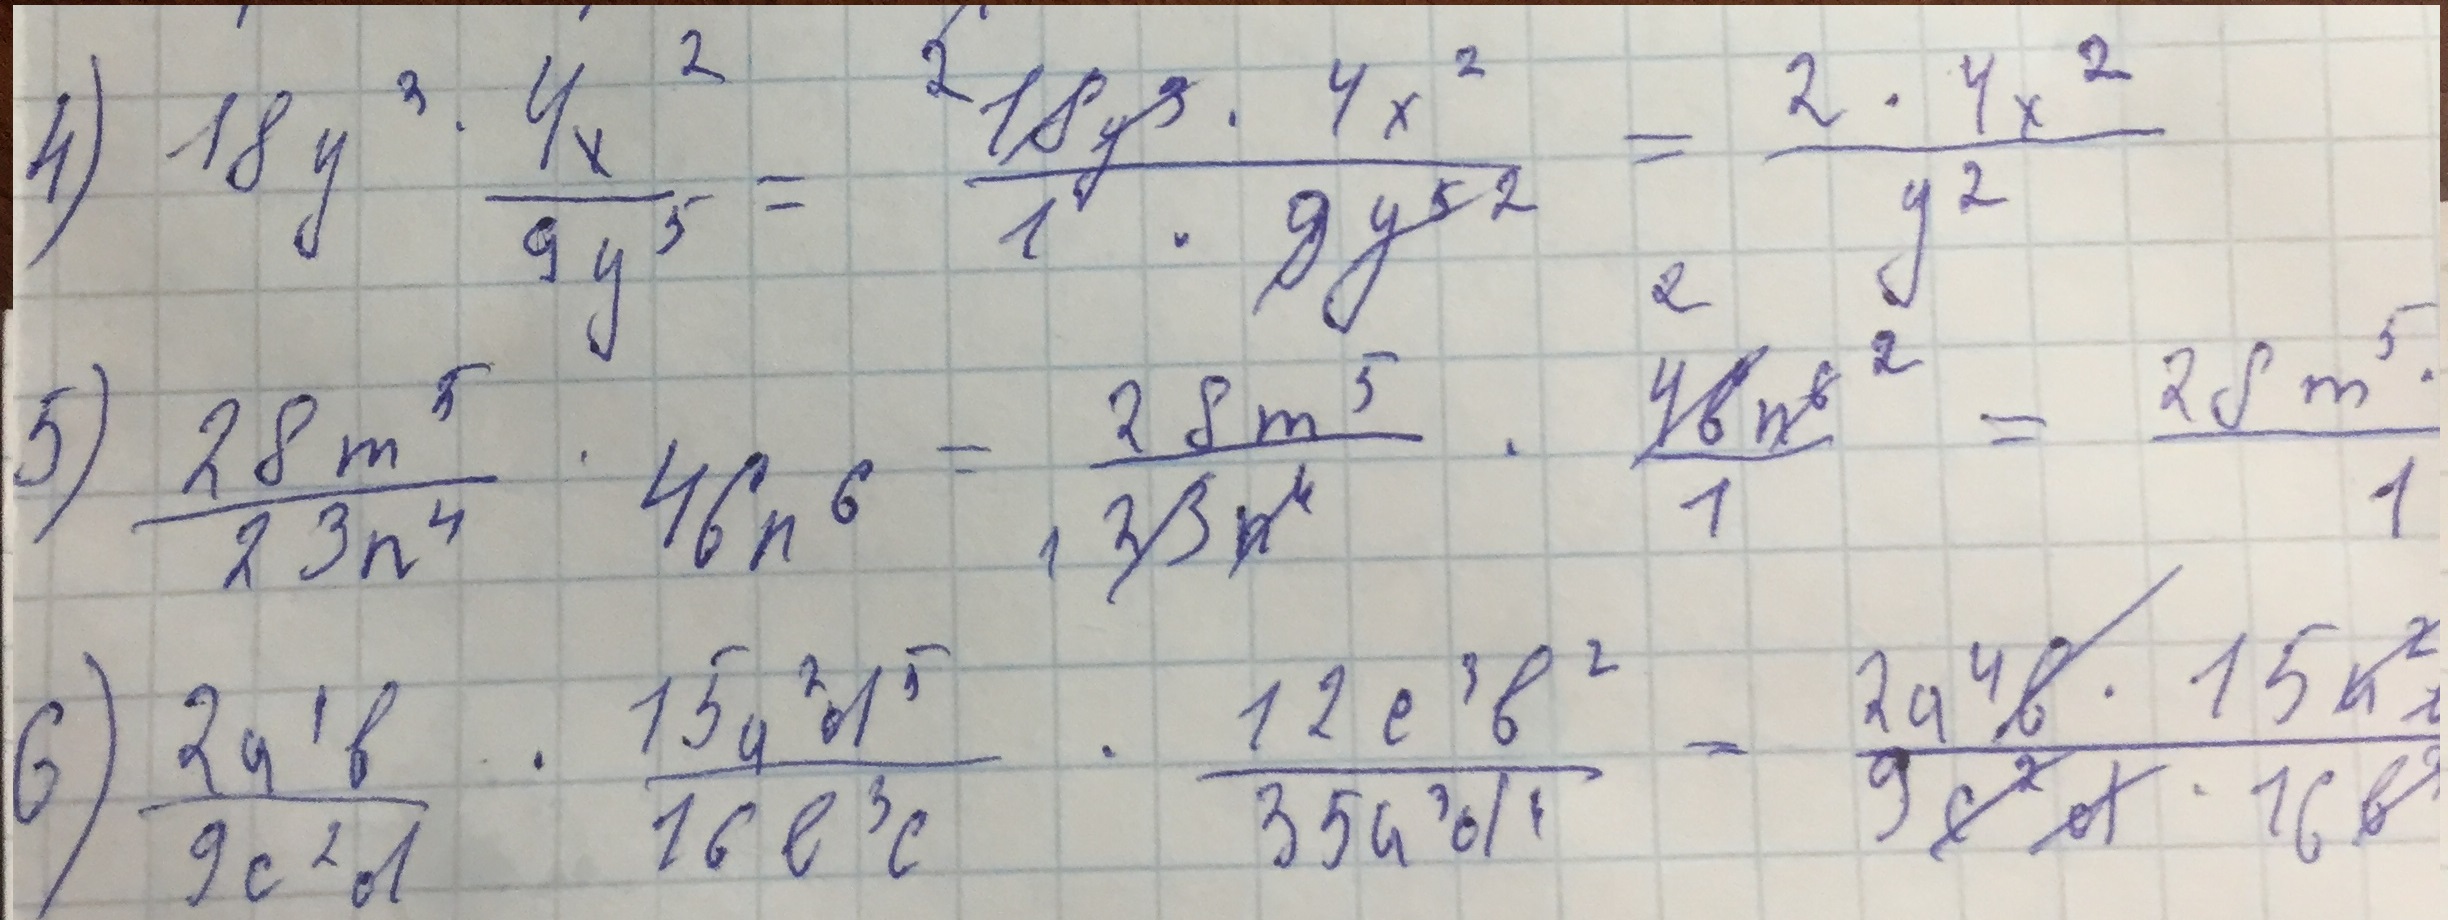 4) 18y³ · 4x²/9y⁵ = ²18y³ · 4x²/1 · 9y⁵ ² = 2 · 4x²/y²
5) 28m⁵/23n⁴ · 46n⁶ = 28m⁵/₁23n⁴ · ²46n⁶ ²/1 = 28m⁵ ·/1
6) 2a⁴b/9c²d · 15a²d⁵/16b³c · 12c³b²/35a³d⁴ = 2a⁴b · 15a²/9c²d · 16b³